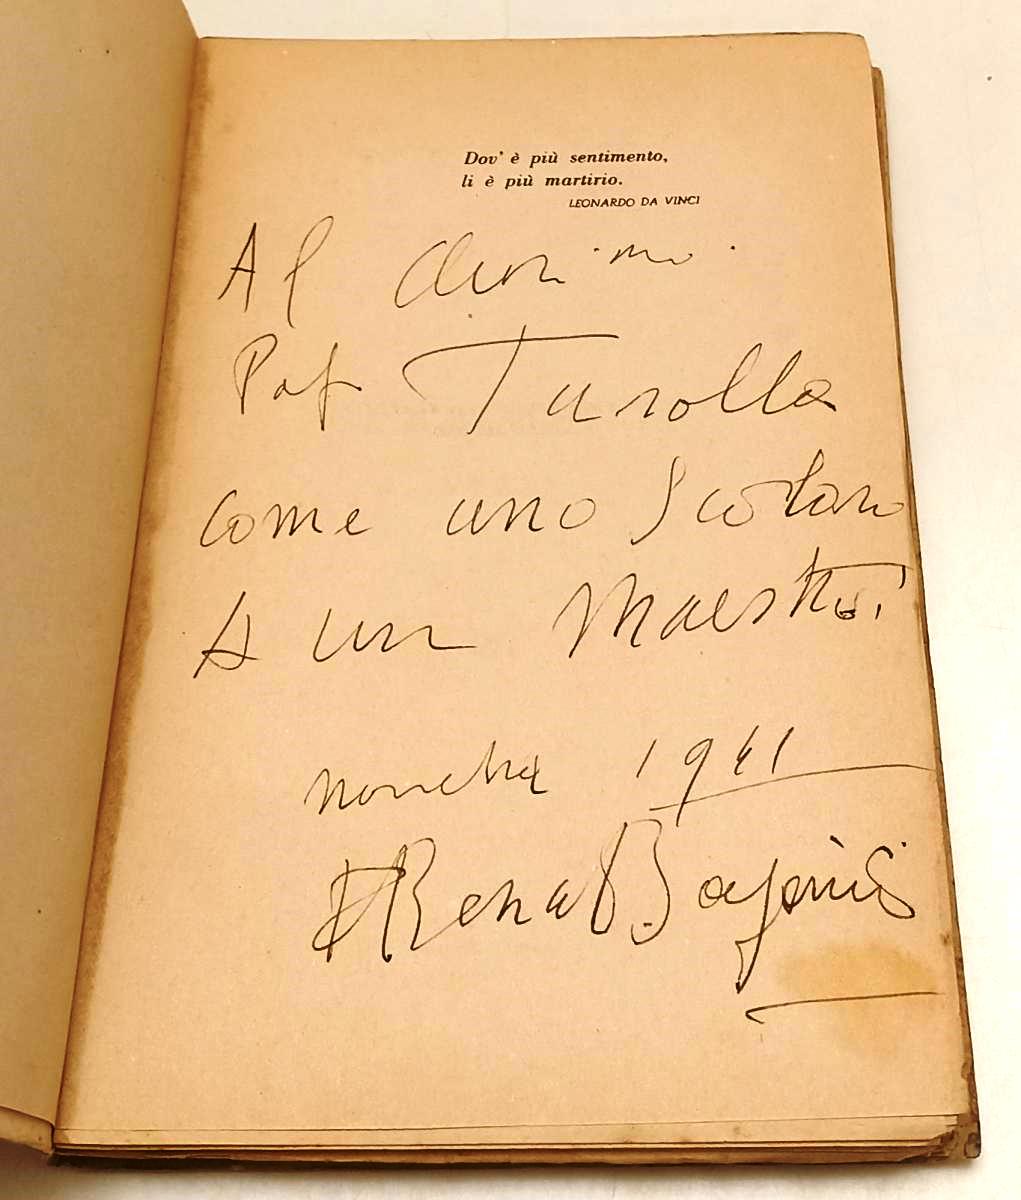 Dov' è più sentimento,
lì è più martirio.
LEONARDO DA VINCI
Al
Prof Turolla
come uno Scolaro
A un Maestro!
novembre 1941
Renato